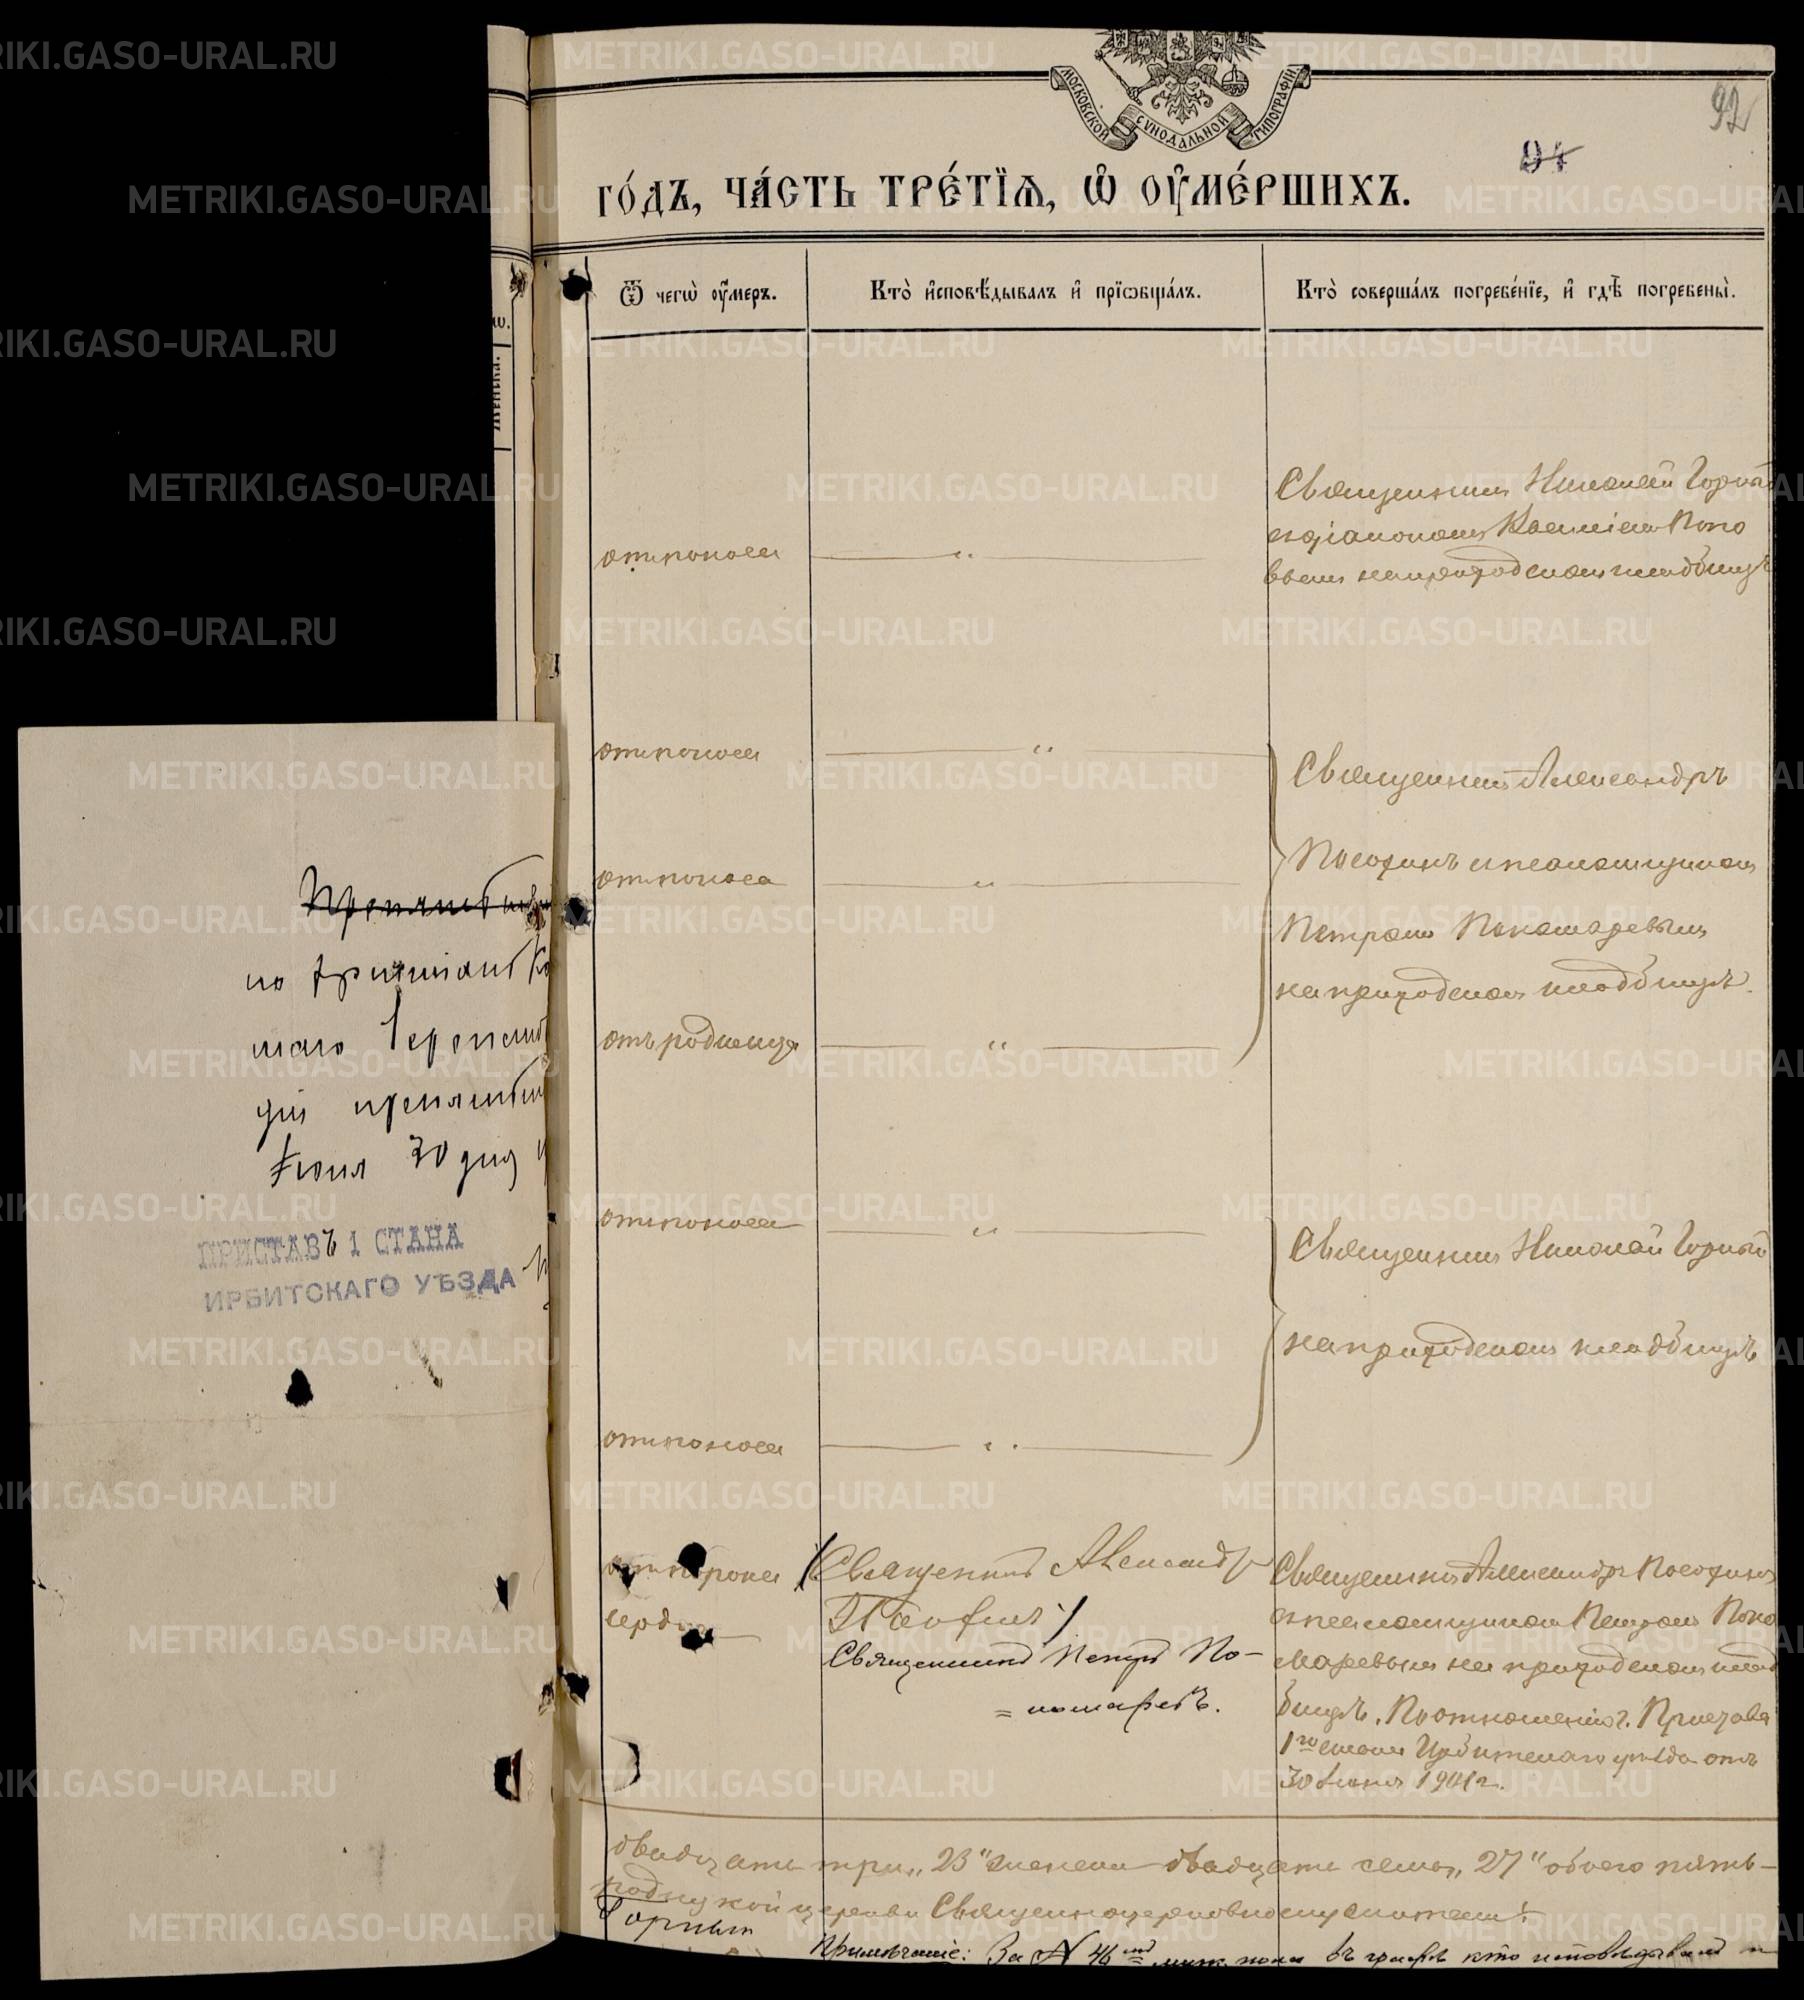 МОСКОВСКОЙ СѴНОДАЛЬНОЙ ТИПОГРАФІИ
92
94
го́дъ, ча́сть тре́тїѧ, ѡ҆ ᲂу҆ме́ршихъ.
Ѿ чегѡ̀ ᲂу҆́меръ.
Кто̀ и҆сповѣ́дывалъ и҆ прїѡбща́лъ.
Кто̀ соверша́лъ погребе́нїе, и҆ гдѣ̀ погребены̀.
Священникъ Николай Горный
отъ поноса
съ діакономъ Василіемъ Попо
вымъ на приходскомъ кладбищѣ
отъ поноса
Священникъ Александръ
отъ поноса
Посохинъ съ псаломщикомъ
Петромъ Пономаревымъ
на приходскомъ кладбищѣ.
отъ родимца
отъ поноса
Священникъ Николай Горный
на приходскомъ кладбищѣ
отъ поноса
отъ порока
сердца
(Священникъ Александръ
Священникъ Петръ По-
= номаревъ.
Священникъ Александръ Посохинъ
съ псаломщикомъ Петромъ Поно
маревымъ на приходскомъ клад
бищѣ. По отношенію г. Пристава
1го стана Ирбитскаго уѣзда отъ
30 Іюня 1901 г.
двадцать три „23“ женска двадцать семь „27“ обоего пять-
церкви Священноцерковнослужители:
Горный
Примѣчаніе: За № 46 муж. пола въ графѣ кто исповѣдывалъ и
по
Іюня 30 дня
ПРИСТАВЪ 1 СТАНА
ИРБИТСКАГО УѢЗДА
METRIKI.GASO-URAL.RU